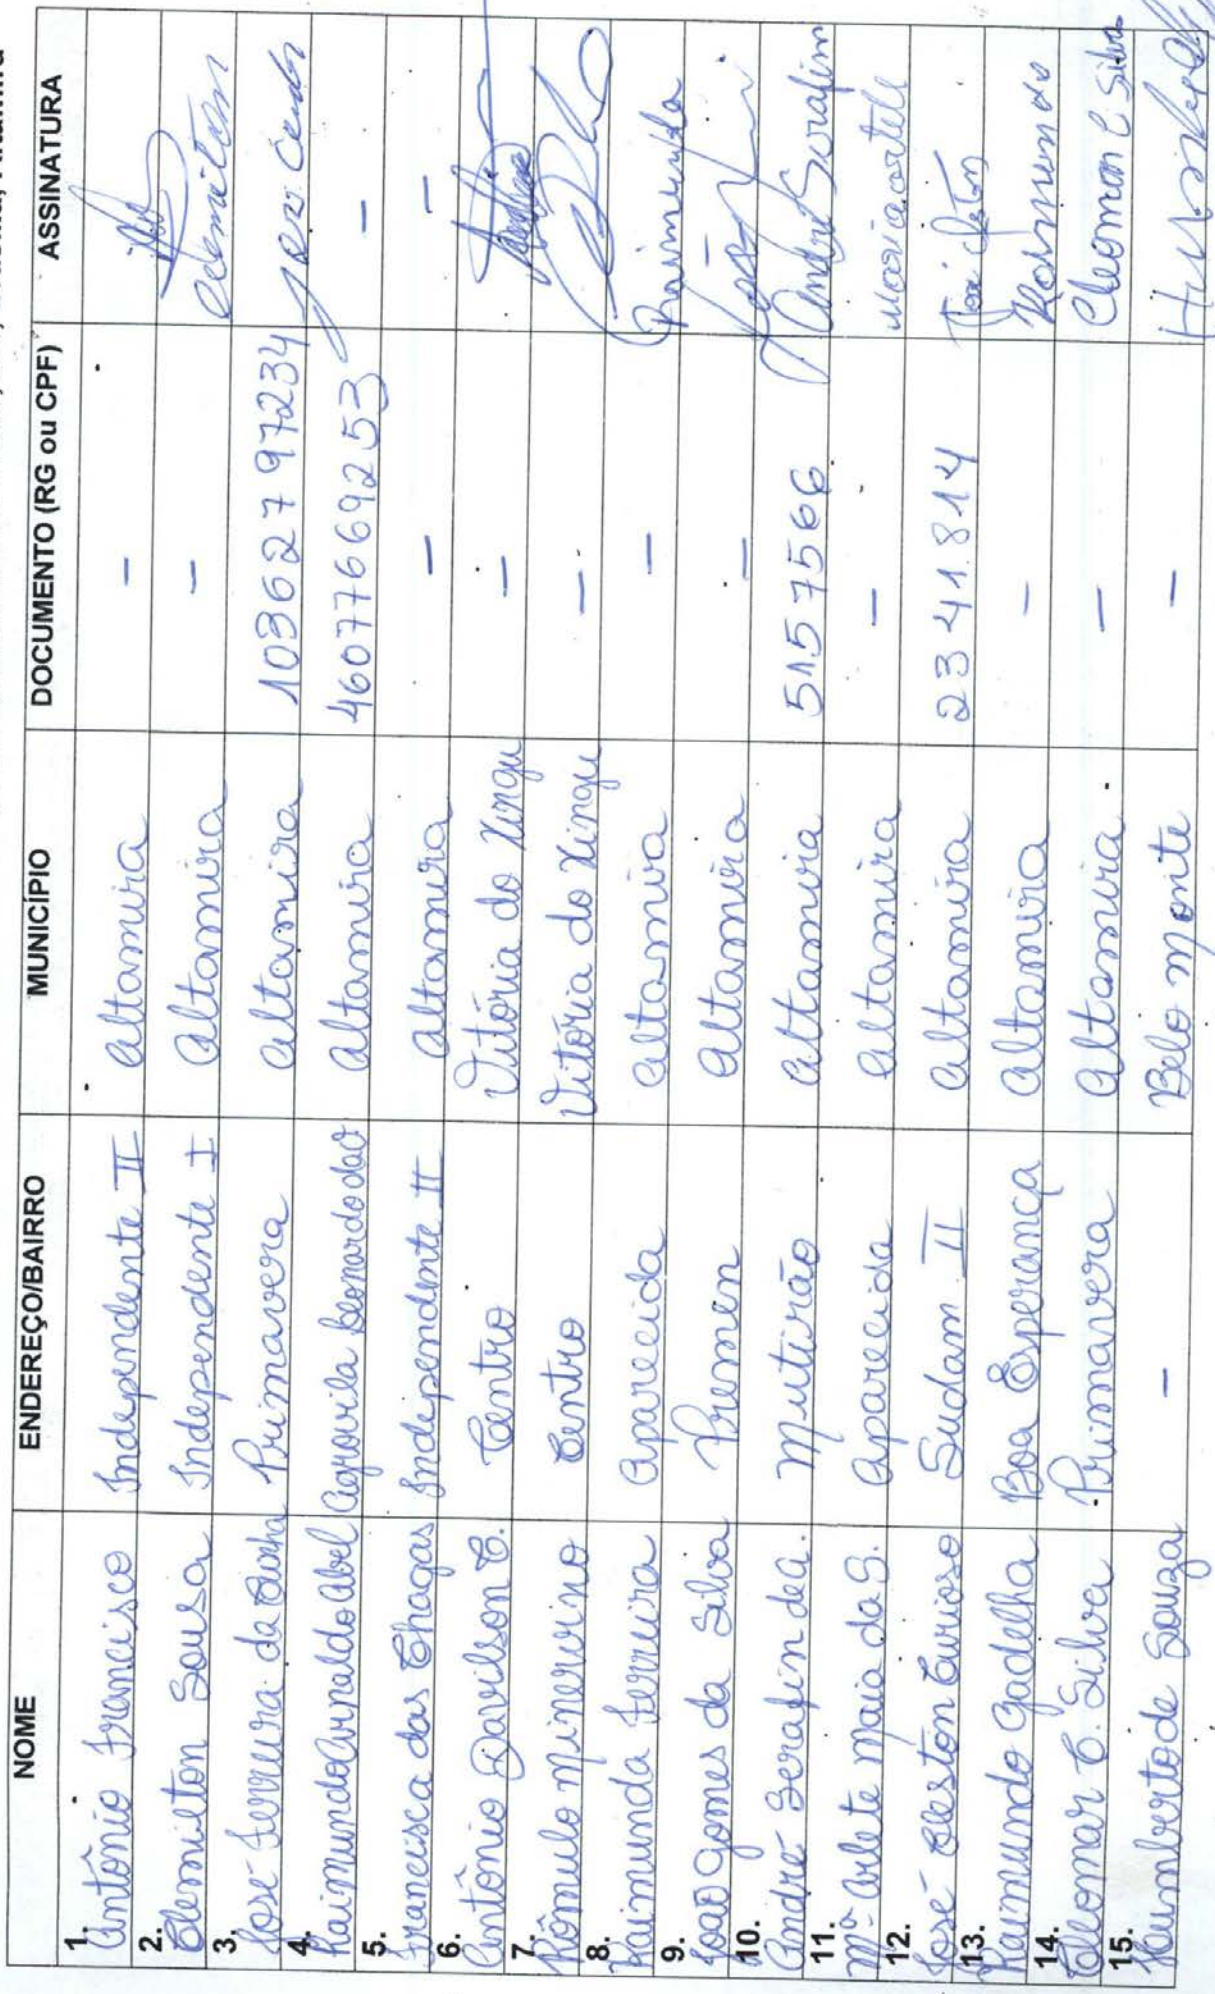 NOME ENDEREÇO/BAIRRO MUNICÍPIO DOCUMENTO (RG ou CPF) ASSINATURA
1. Antônio Francisco Independente II Altamira –
2. Clemilton Sousa Independente I Altamira – Clemilton
3. José Ferreira da Cunha Primavera Altamira 10362797234
4. Raimundo Arnaldo Abel Agrovila Leonardo da Altamira 46077669253 –
5. Francisca das Chagas Independente II Altamira – –
6. Antônio Davilson C. Centro Vitória do Xingu –
7. Rômulo Minervino Centro Vitória do Xingu –
8. Raimunda Ferreira Aparecida Altamira – Raimunda
9. João Gomes da Silva Premen Altamira –
10. André Serafim de A. Mutirão Altamira 5157566 André Serafim
11. Mª Arlete Maia da S. Aparecida Altamira –
12. José Cleston Curioso Sudam II Altamira 2341.814
13. Raimundo Gadelha Boa Esperança Altamira –
14. Cleomar C. Silva Primavera Altamira – Cleomar C Silva
15. Humberto de Souza – Belo Monte –